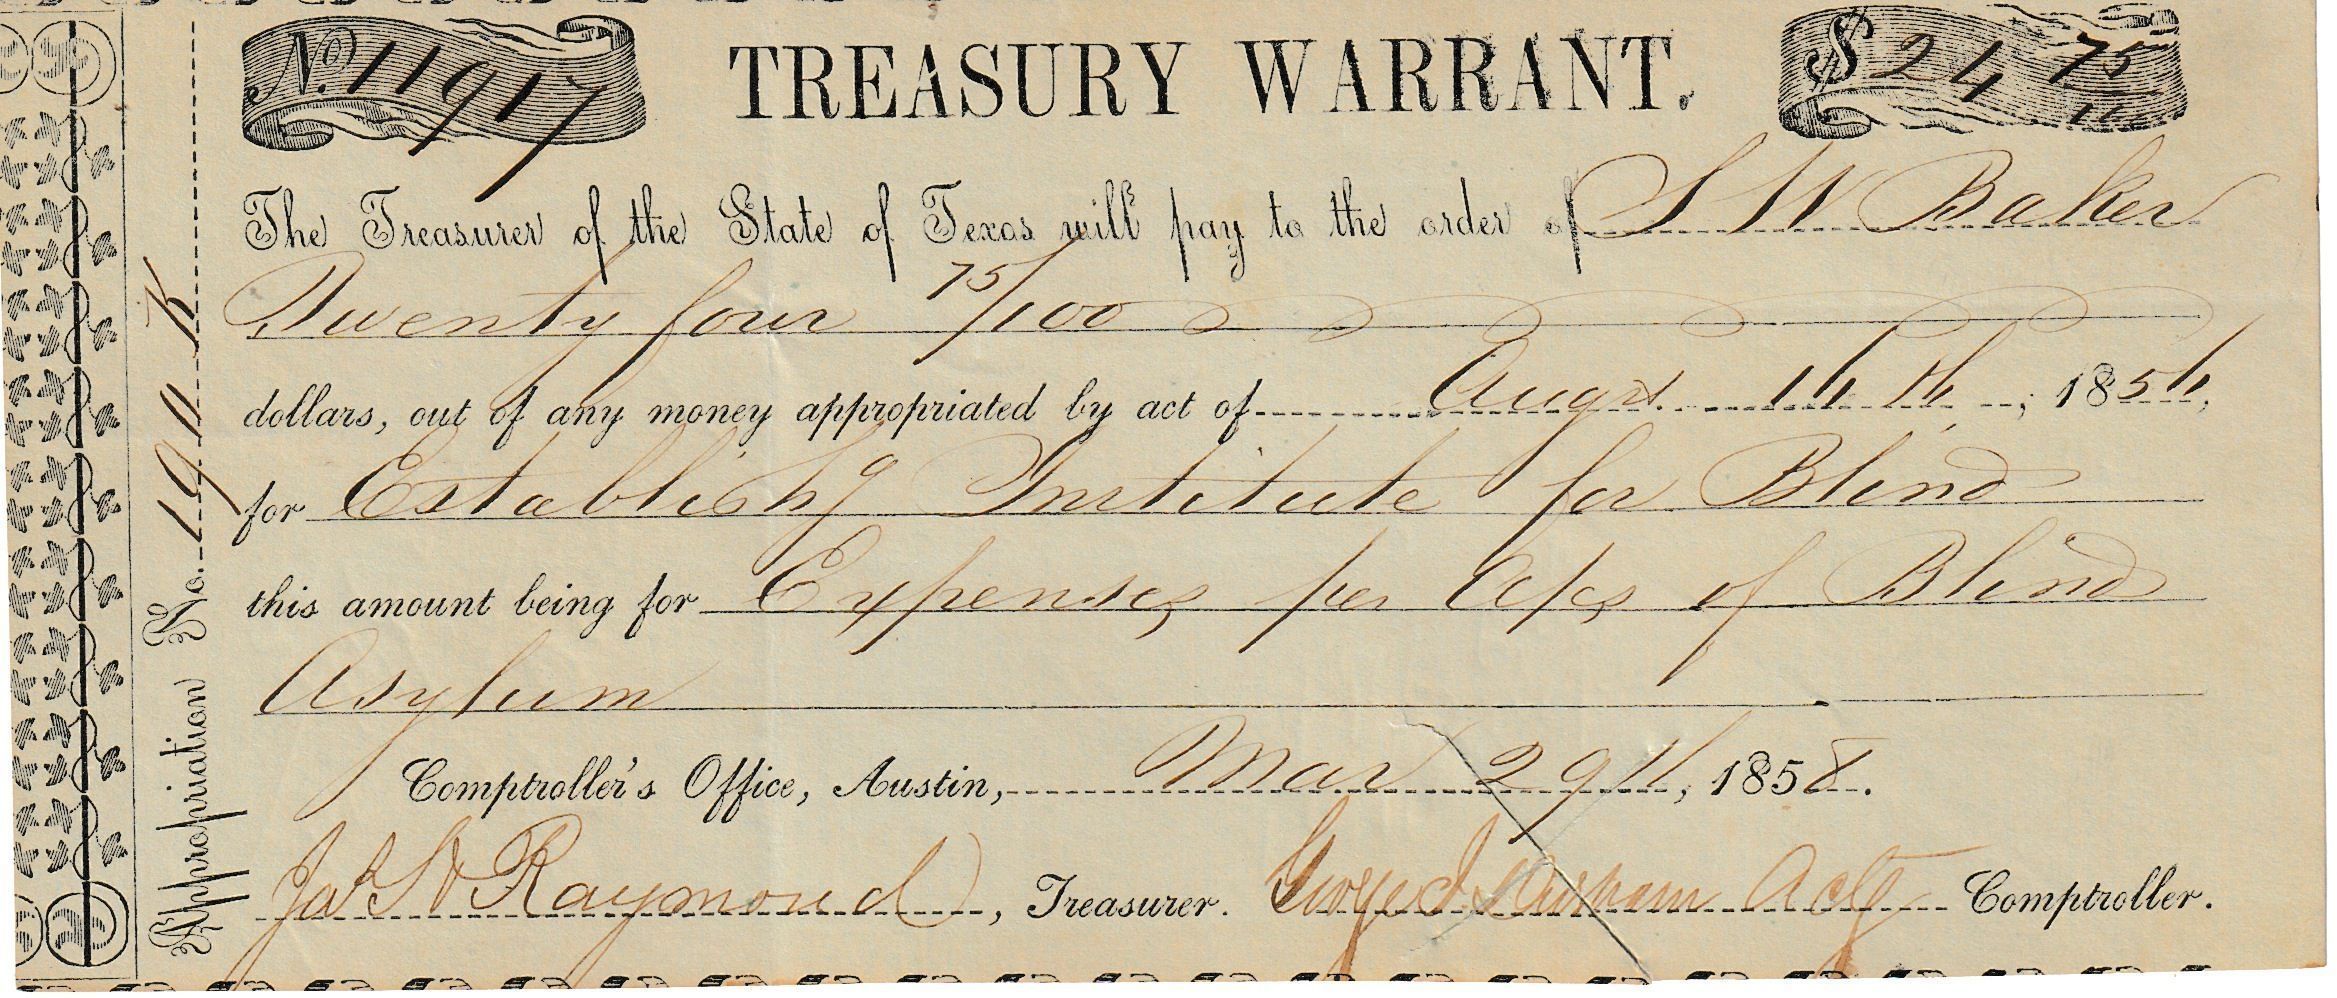 No. 11917 TREASURY WARRANT. $ 24 75
The Treasurer of the State of Texas will pay to the order of S W Baker
Twenty four 75/100
dollars, out of any money appropriated by act of Augst 14th, 1856,
for Establishg Institute for Blind
this amount being for Expenses per a/cs of Blind
Asylum
Comptroller's Office, Austin, Mar 29th, 1858.
Jas H Raymond, Treasurer. George J Durham Actg Comptroller.
Appropriation No. 190 K